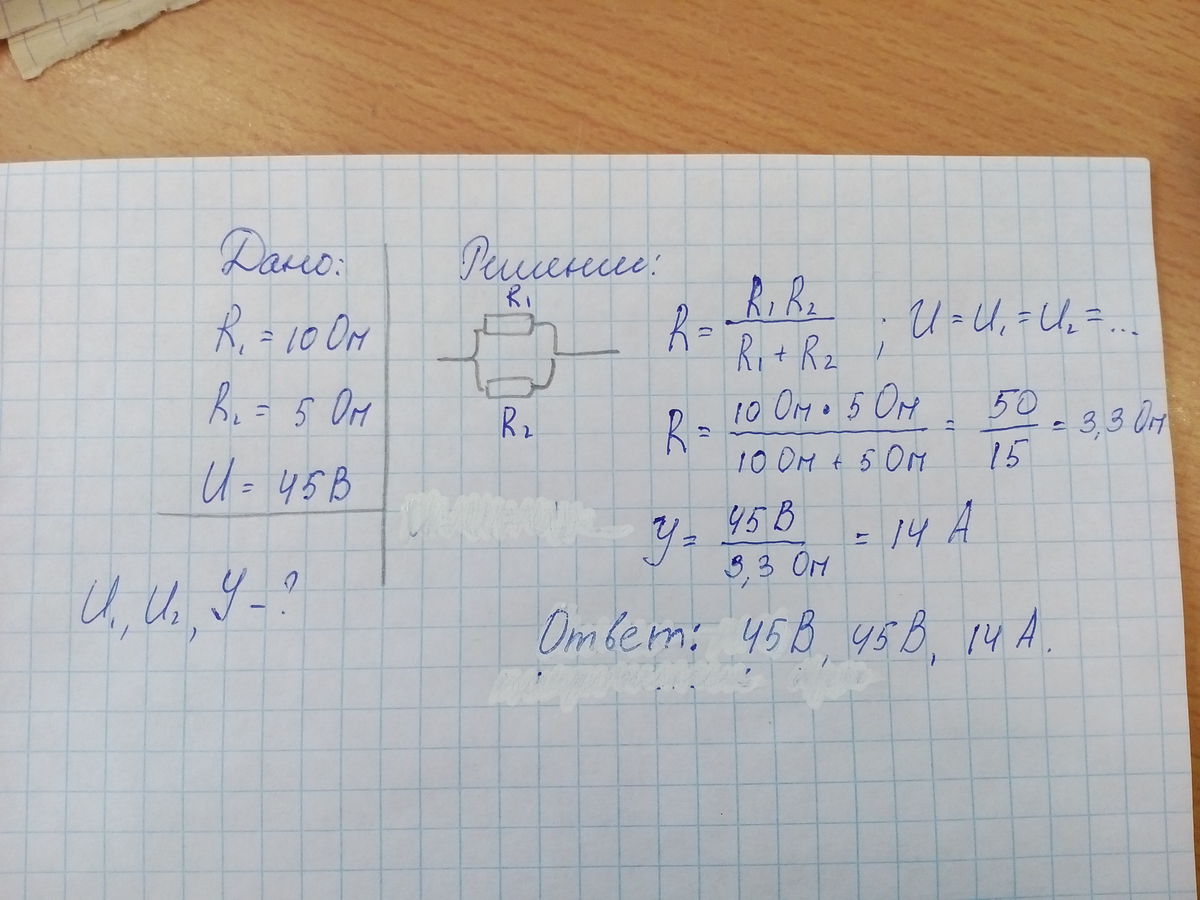 Дано:
R₁ = 10 Ом
R₂ = 5 Ом
U = 45 В
U₁, U₂, У - ?
Решение:
R₁
R₂
R = R₁ R₂ / R₁ + R₂ ; U = U₁ = U₂ = ...
R = 10 Ом · 5 Ом / 10 Ом + 5 Ом = 50 / 15 = 3,3 Ом
У = 45 В / 3,3 Ом = 14 А
Ответ: 45 В, 45 В, 14 А.